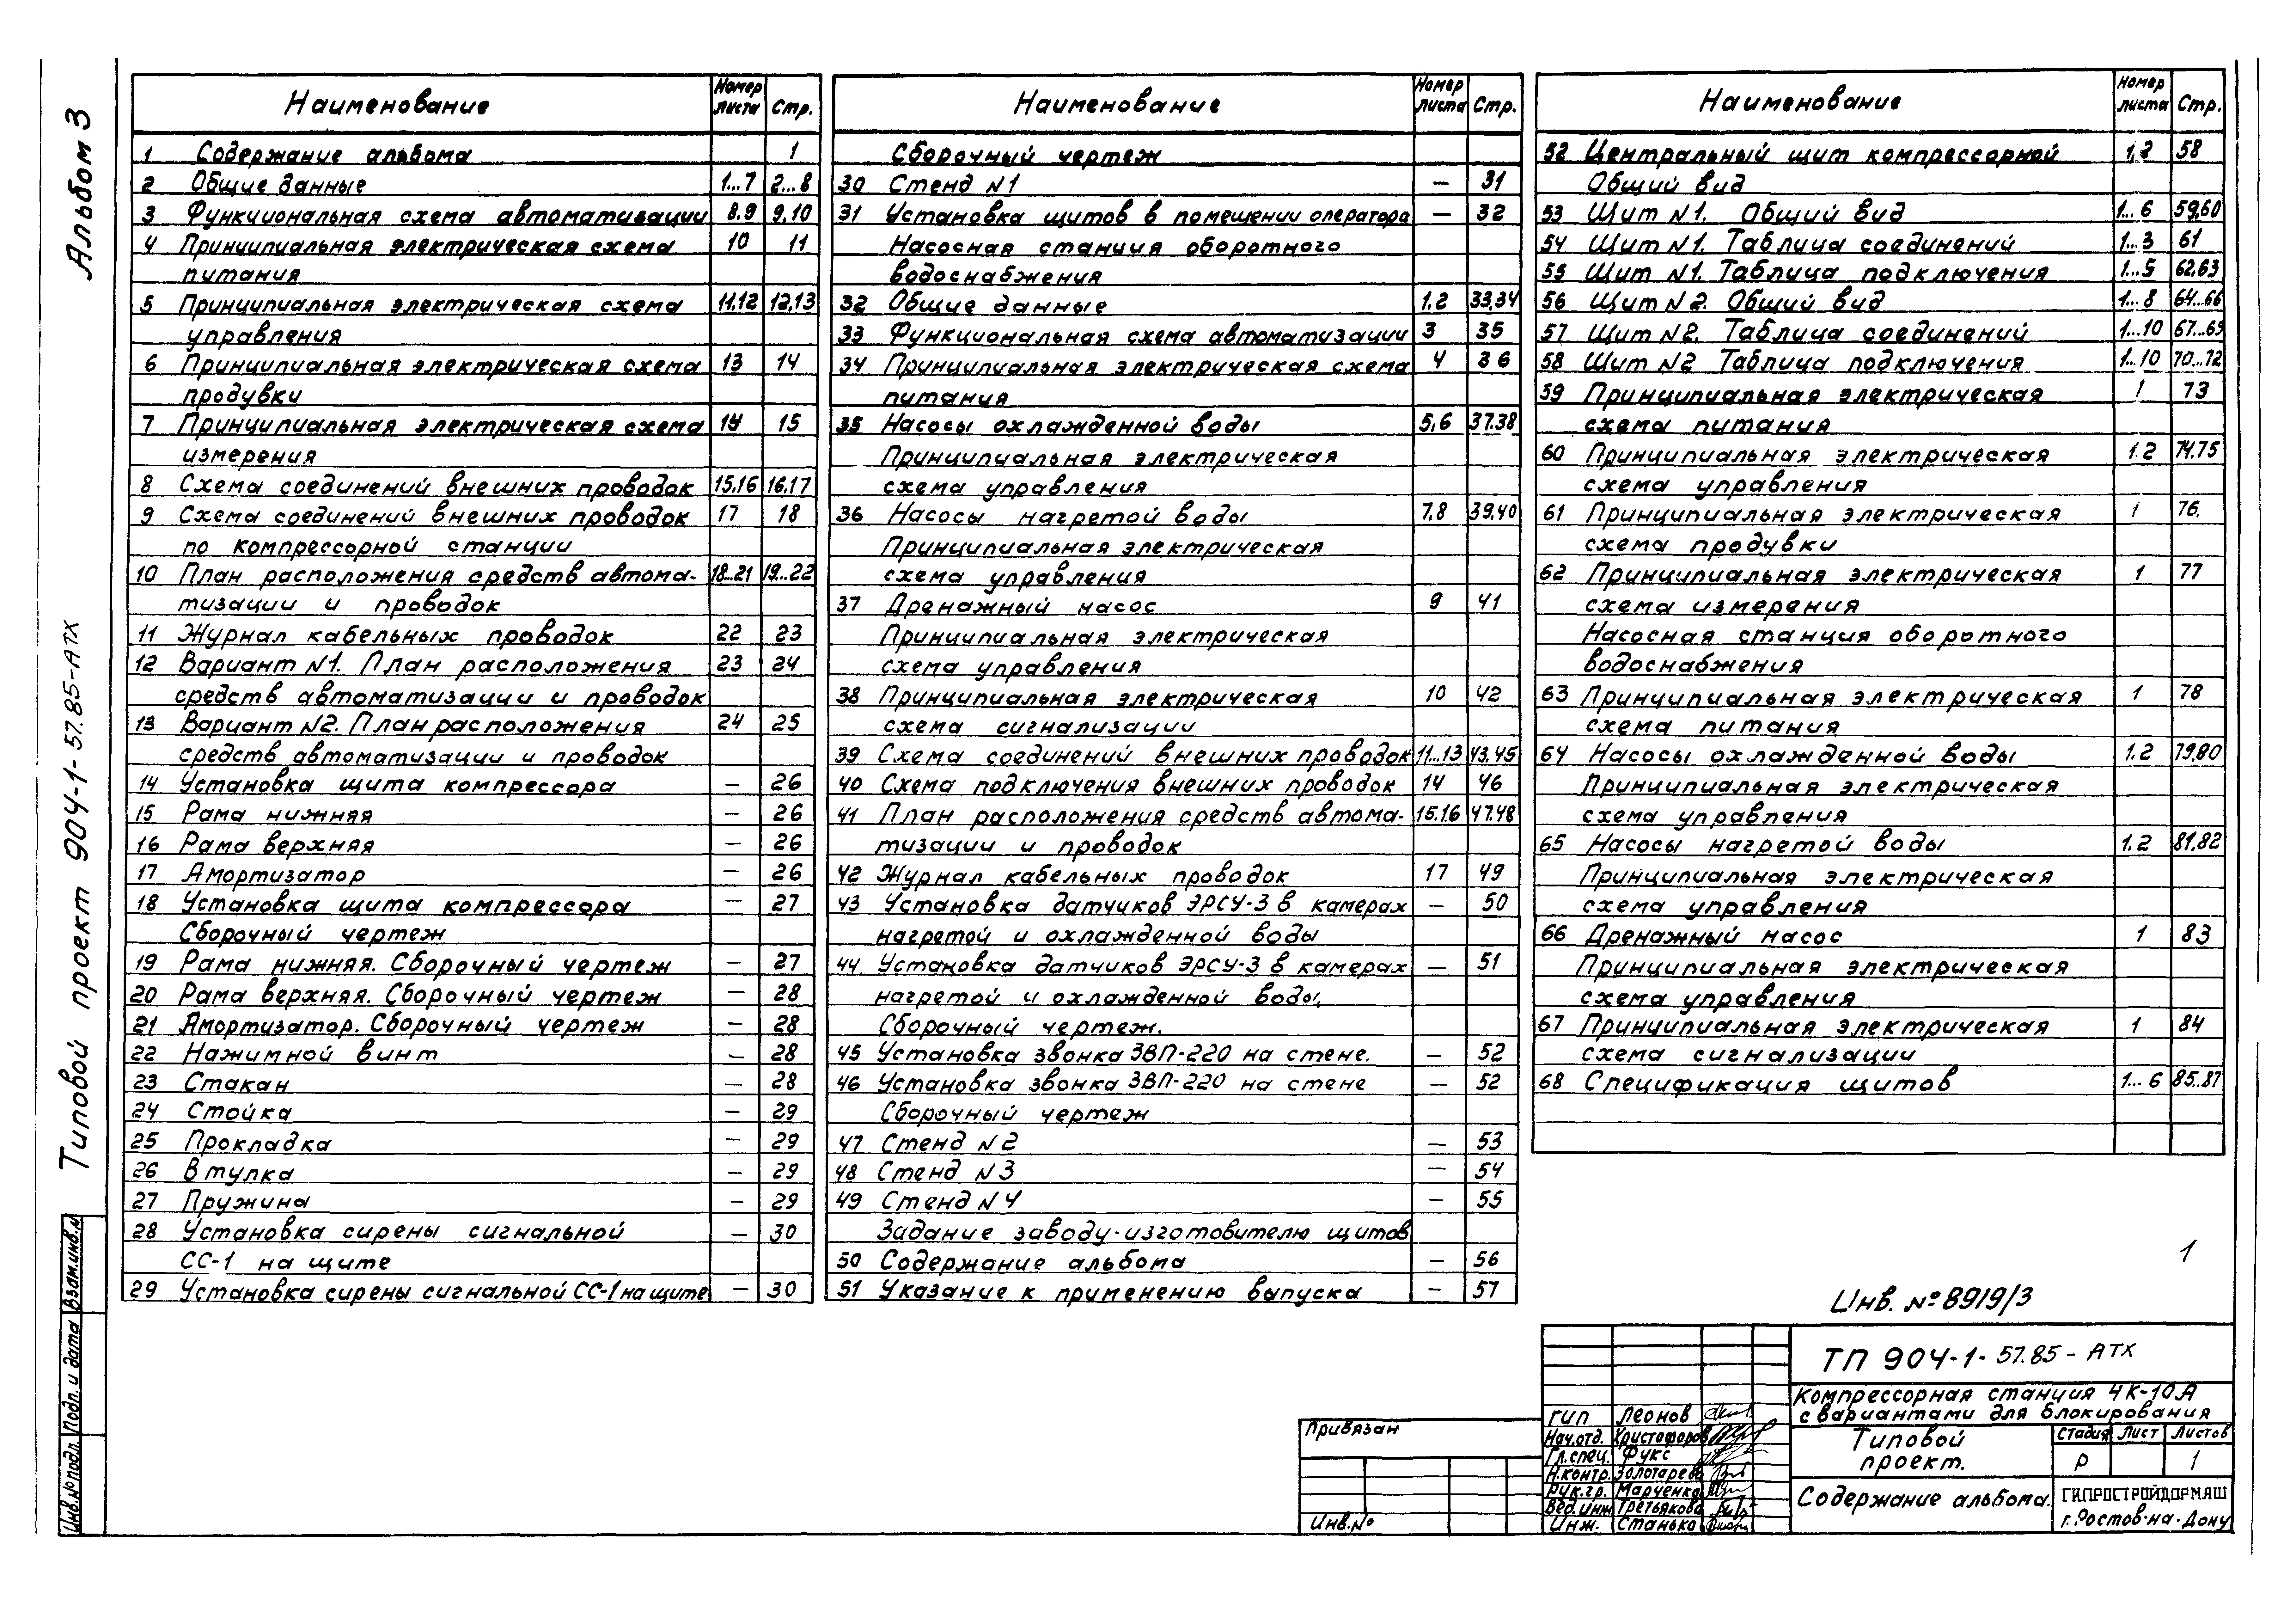 Альбом 3
Типовой проект 904-1-57.85-АТХ
Взам.инв.№
Подп. и дата
Инв.№подл.
Наименование Номер листа Стр.
1 Содержание альбома 1
2 Общие данные 1...7 2...8
3 Функциональная схема автоматизации 8,9 9,10
4 Принципиальная электрическая схема 10 11
питания
5 Принципиальная электрическая схема 11,12 12,13
управления
6 Принципиальная электрическая схема 13 14
продувки
7 Принципиальная электрическая схема 14 15
измерения
8 Схема соединений внешних проводок 15,16 16,17
9 Схема соединений внешних проводок 17 18
по компрессорной станции
10 План расположения средств автома- 18..21 19...22
тизации и проводок
11 Журнал кабельных проводок 22 23
12 Вариант N1. План расположения 23 24
средств автоматизации и проводок
13 Вариант N2. План расположения 24 25
средств автоматизации и проводок
14 Установка щита компрессора — 26
15 Рама нижняя — 26
16 Рама верхняя — 26
17 Амортизатор — 26
18 Установка щита компрессора — 27
Сборочный чертеж
19 Рама нижняя. Сборочный чертеж — 27
20 Рама верхняя. Сборочный чертеж — 28
21 Амортизатор. Сборочный чертеж — 28
22 Нажимной винт — 28
23 Стакан — 28
24 Стойка — 29
25 Прокладка — 29
26 Втулка — 29
27 Пружина — 29
28 Установка сирены сигнальной — 30
СС-1 на щите
29 Установка сирены сигнальной СС-1 на щите — 30
Наименование Номер листа Стр.
Сборочный чертеж
30 Стенд N1 — 31
31 Установка щитов в помещении оператора — 32
Насосная станция оборотного
водоснабжения
32 Общие данные 1,2 33,34
33 Функциональная схема автоматизации 3 35
34 Принципиальная электрическая схема 4 36
питания
35 Насосы охлажденной воды 5,6 37.38
Принципиальная электрическая
схема управления
36 Насосы нагретой воды 7,8 39,40
Принципиальная электрическая
схема управления
37 Дренажный насос 9 41
Принципиальная электрическая
схема управления
38 Принципиальная электрическая 10 42
схема сигнализации
39 Схема соединений внешних проводок 11...13 43,45
40 Схема подключения внешних проводок 14 46
41 План расположения средств автома- 15,16 47,48
тизации и проводок
42 Журнал кабельных проводок 17 49
43 Установка датчиков ЭРСУ-3 в камерах — 50
нагретой и охлажденной воды
44 Установка датчиков ЭРСУ-3 в камерах — 51
нагретой и охлажденной воды,
Сборочный чертеж.
45 Установка звонка ЗВП-220 на стене. — 52
46 Установка звонка ЗВП-220 на стене — 52
Сборочный чертеж
47 Стенд N2 — 53
48 Стенд N3 — 54
49 Стенд N4 — 55
Задание заводу-изготовителю щитов
50 Содержание альбома — 56
51 Указание к применению выпуска — 57
Наименование Номер листа Стр.
52 Центральный щит компрессорной 1,2 58
Общий вид
53 Щит N1. Общий вид 1...6 59,60
54 Щит N1. Таблица соединений 1...3 61
55 Щит N1. Таблица подключения 1...5 62,63
56 Щит N2. Общий вид 1...8 64...66
57 Щит N2. Таблица соединений 1...10 67...69
58 Щит N2 Таблица подключения 1...10 70...72
59 Принципиальная электрическая 1 73
схема питания
60 Принципиальная электрическая 1.2 74,75
схема управления
61 Принципиальная электрическая 1 76.
схема продувки
62 Принципиальная электрическая 1 77
схема измерения
Насосная станция оборотного
водоснабжения
63 Принципиальная электрическая 1 78
схема питания
64 Насосы охлажденной воды 1.2 79,80
Принципиальная электрическая
схема управления
65 Насосы нагретой воды 1.2 81,82
Принципиальная электрическая
схема управления
66 Дренажный насос 1 83
Принципиальная электрическая
схема управления
67 Принципиальная электрическая 1 84
схема сигнализации
68 Спецификация щитов 1...6 85..87
1
Инв. № 8919/3
Привязан
Инв.№
ГИП Леонов
Нач.отд. Христофоров
Гл.спец. Фукс
Н.контр. Золотарева
Рук.гр. Марченко
Вед.инж Третьякова
Инж. Станько
ТП 904-1-57.85-АТХ
Компрессорная станция 4К-10А
с вариантами для блокирования
Типовой
проект.
Стадия Лист Листов
Р 1
Содержание альбома.
ГИПРОСТРОЙДОРМАШ
г.Ростов-на-Дону